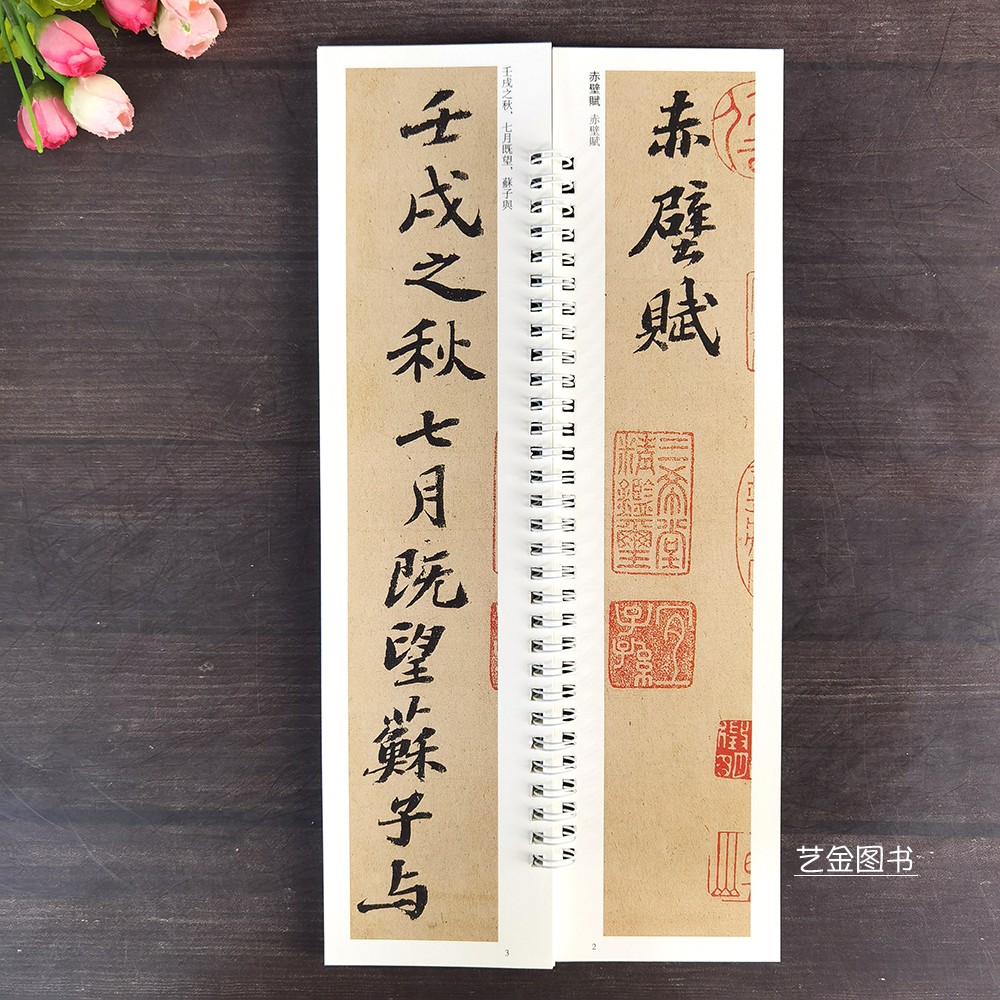 赤壁賦 赤壁賦
赤壁賦
三希堂精鑑璽
宜子孫
2
壬戌之秋，七月既望，蘇子與
壬戌之秋七月既望蘇子与
3
艺金图书